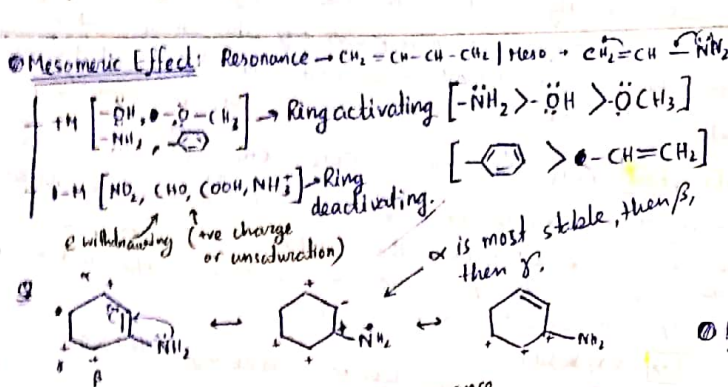 Mesomeric Effect: Resonance → CH₂ = CH - CH - CH₂ | Meso → CH₂ = CH - N̈H₂
+M [-ÖH, -Ö-CH₃] → Ring activating [-N̈H₂ > -ÖH > -ÖCH₃]
-NH₂,
[ > -CH=CH₂]
-M [NO₂, CHO, COOH, NH₃⁺] → Ring deactivating.
e⁻ withdrawing (+ve charge or unsaturation)
α is most stable, then β,
then γ.
Q
α + N̈H₂ ↔ + - + N̈H₂ ↔ + + NH₂
γ + β